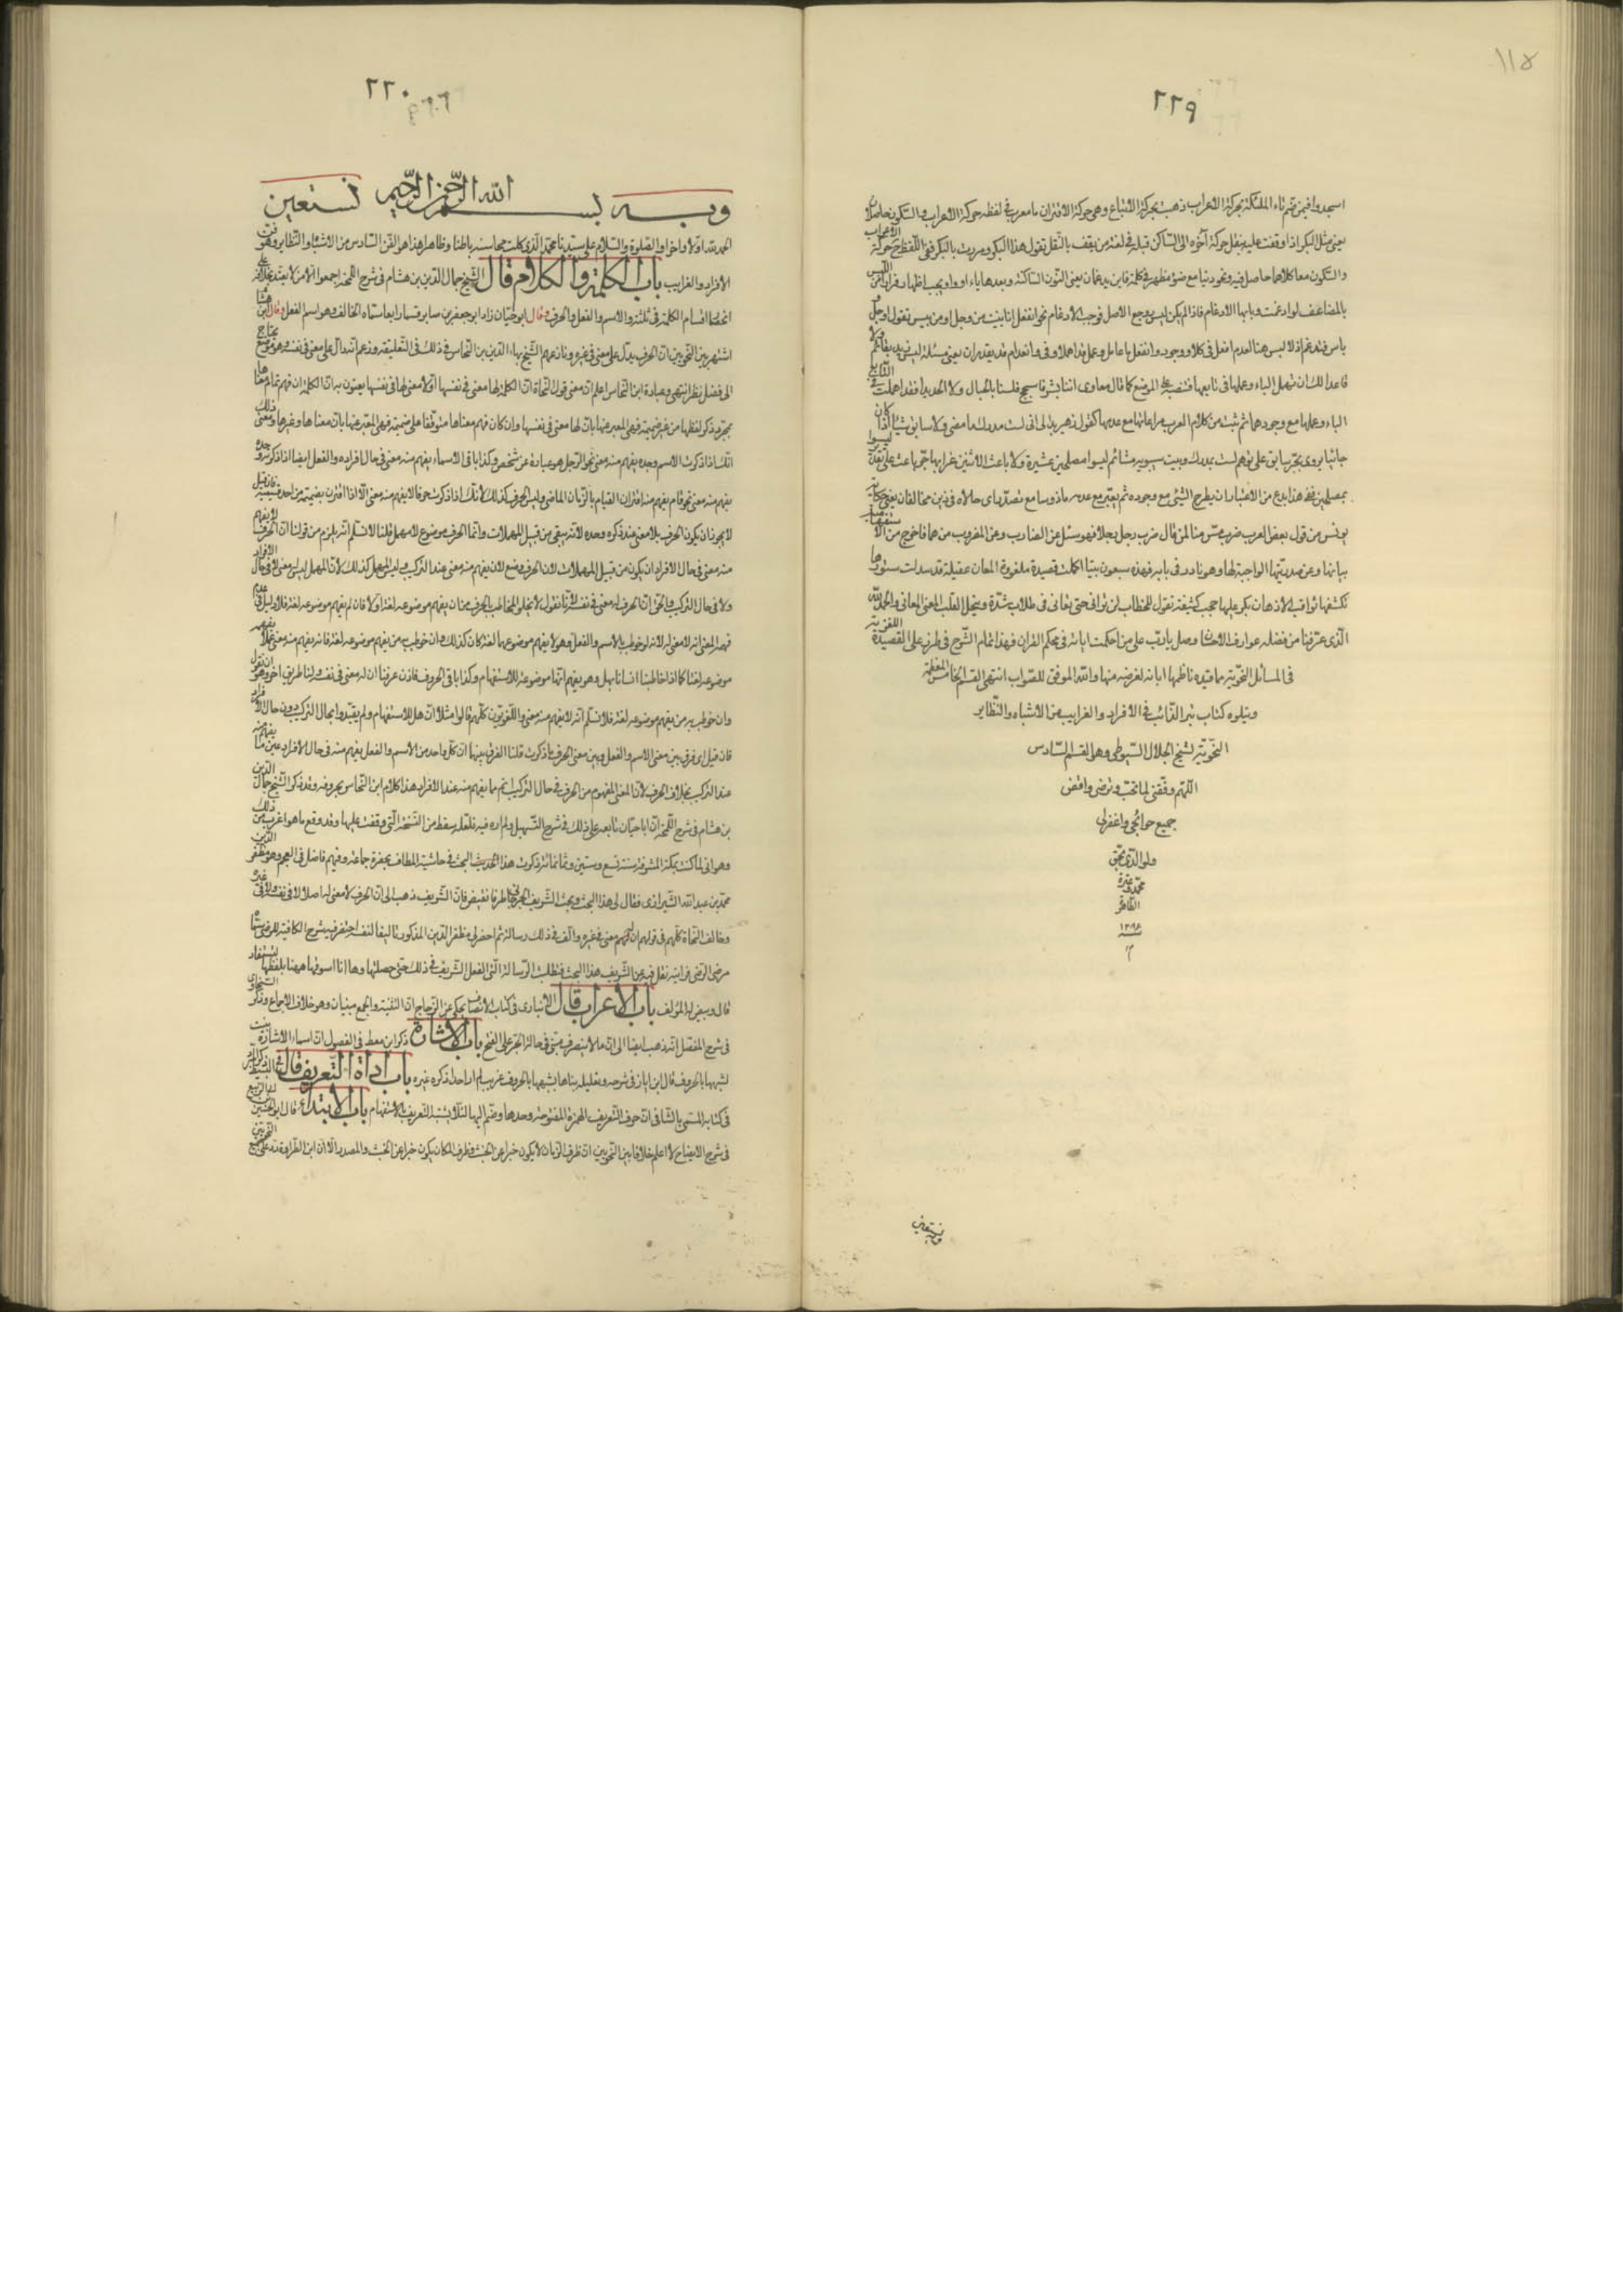 ١١٥
٢٢٩
اسجدوا فيمن ضم تاء الملئكة بحركة الاعراب ذهبت بحركة الاتباع وهى حركة الاقتران ما معرب فى لفظه حركة الاعراب والسكون حاصلان
يعنى مثل البكر اذا وقفت عليه بنقل حركة آخره الى الساكن قبله فى لغة من يقف بالنقل تقول هذا البكر ومررت بالبكر ففى اللفظ ح حركة الاعراب
والسكون معا كلاهما حاصل فيه ونحو دنيا مع صنو مظهر فى كلمة فاين يدغمان يعنى النون الساكنة وبعدها ياء او واو ويجب اظهارها فرارا من اللبس
بالمضاعف لو ادغمت وبابها الادغام فاذا لم يكن لبس رجع الاصل فوجب الادغام نحو انفعل اذا بنيت من وجل او من يبس تقول اوجل و
ياس فتدغم اذ لا لبس هنا لعدم افعل فى كلا ووجود وانفعل يا عامل وعمل قد اهملا وفى وانعدام قد يقدران يعنى مسئلة ليس زيد بقائم ولا
قاعدا لك ان تهمل الباء وعملها فى تابعها فتنصبه على الموضع كما قال معاوى اننا بشر فاسجح فلسنا بالجبال ولا الحديدا فقد اهملت فى التابع
الباء وعملها مع وجودها ثم ثبت من كلام العرب مراعاتها مع عدمها كقول زهير بدا لى انى لست مدرك ما مضى ولا سابق شيئا اذا كان
جائيا يروى بجر سابق على توهم لست بمدرك وبيت سيبويه مشائم ليسوا مصلحين عشيرة ولا ناعب الا ببين غرابها جر ناعب على تقدير ليسوا
بمصلحين فهذا بدع من الاعتبار ان يطرح الشئ مع وجوده ثم يعتبر مع عدمه ماذ وسا مع تصدرها ى حالاه فى زين مخالفان يعنى حكاية
يونس من قول بعض العرب ضرب من منا لمن قال ضرب رجل رجلا فهو سئل عن الضارب وعن المضروب من هما فاخرج من الاستفهامية
بيانها وعن صدريتها الواجبة لها وهو نادر فى بابه فهذه سبعون بيتا اكملت قصيدة ملغزة المعان عقيلة قد سدلت ستورها
تكشفها ثواقب الاذهان بكر عليها حجب كثيفة تقول للخطاب لن ترانى حتى يعانى فى طلاب شدة ويعمل القلب المعنى المعانى والحمد لله
الذى عرفنا من فضله عوارف الاحسان وصل يا رب على من احكمت اياته فى محكم القران فهذا تمام الشرح فى طرز على القصيدة اللغزية
فى المسائل النحوية مما قيده ناظمها ابانة لغرضه منها والله الموفق للصواب انتهى القسم الخامس
ويتلوه كتاب تبر الذائب فى الافراد والغرايب من الاشباه والنظاير
النحوية للشيخ الجلال السيوطى وهو القسم السادس
اللهم وفقنى لما تحب وترضى واقض
جميع حوائجى واغفر لى
ولوالدى بحق
محمد وعترته
الطاهرة
وبه نستعين
٢٣٠
وبه بسم الله الرحمن الرحيم نستعين
الحمد لله اولا واخرا والصلوة والسلام على سيدنا محمد الذى كملت محاسنه باطنا وظاهرا هذا هو الفن السادس من الاشباه والنظاير وهو فن
الافراد والغرايب باب الكلمة والكلام قال الشيخ جمال الدين بن هشام فى شرح اللمحة اجمعوا الا من لا يعتد بخلافه على
انحصار اقسام الكلمة فى ثلثة الاسم والفعل والحرف وقال ابو حيان زاد ابو جعفر بن صابر قسما رابعا سماه الخالفة وهو اسم الفعل وقال ابن هشام
اشتهر بين النحويين ان الحرف يدل على معنى فى غيره ونازعهم الشيخ بهاء الدين بن النحاس فى ذلك فى التعليقة وزعم انه دال على معنى فى نفسه وهو موضع يحتاج
الى فضل نظر انتهى وعبارة ابن النحاس اعلم ان معنى قول النحاة ان الكلمة لها معنى فى نفسها او لا معنى لها فى نفسها يعنون به ان الكلمة ان فهم تمام معناها
بمجرد ذكر لفظها من غير ضميمة فهى المعبر عنها بان لها معنى فى نفسها وان كان فهم معناها متوقفا على ضميمة فهى المعبر عنها بان معناها فى غيرها ومعنى ذلك
انك اذا ذكرت الاسم وحده يفهم منه معنى نحو الرجل هو عبارة عن شخص وكذا باقى الاسماء يفهم منه معنى فى حال افراده والفعل ايضا اذا ذكرته وحده
يفهم منه معنى نحو قام يفهم منه اقتران القيام بالزمان الماضى وليس الحرف كذلك لانك اذا ذكرت حرفا لا يفهم منه معنى الا اذا اقترن بضميمة من احد قسيميه فان قيل
لا يجوز ان يكون الحرف بلا معنى عند ذكره وحده لانه يبقى من قبيل المهملات وانما الحرف موضوع لا مهمل قلنا لا نسلم انه يلزم من قولنا ان الحرف لا يفهم
منه معنى فى حال الافراد ان يكون من قبيل المهملات لان الحرف وضع لان يفهم منه معنى عند التركيب وليس المهمل كذلك لان المهمل ليس له معنى لا فى حال الافراد
ولا فى حال التركيب والحق ان الحرف له معنى فى نفسه لانا نقول لا يخلو المخاطب بالحرف من ان يفهم موضوعه لغة اولا فان لم يفهم موضوعه لغة فلا دليل فى عدم
فهمه المعنى انه لا معنى له لانه لو خوطب بالاسم والفعل وهو لا يفهم موضوعهما لغة كان كذلك وان خوطب به من يفهم موضوعه لغة فانه يفهم منه معنى عملا بفهمه
موضوعه لغة كما اذا خاطبنا انسانا بهل وهو يفهم انها موضوعة للاستفهام وكذا باقى الحروف فاذن عرفنا ان له معنى فى نفسه ولنا طريق اخر وهو ان نقول
وان خوطب به من يفهم موضوعه لغة فلا نسلم انه لا يفهم منه معنى واللغويون كلهم قالوا مثلا ان هل للاستفهام ولم يقيدوا بحال التركيب دون حال الافراد
فان قيل اى فرق بين معنى الاسم والفعل وبين معنى الحرف بما ذكرت قلنا الفرق بينهما ان كل واحد من الاسم والفعل يفهم منه فى حال الافراد عين ما يفهم منه
عند التركيب بخلاف الحرف لان المعنى المفهوم من الحرف فى حال التركيب اتم مما يفهم منه عند الافراد هذا كلام ابن النحاس بحروفه وقد ذكر الشيخ جمال الدين
بن هشام فى شرح اللمحة ان ابا حيان تابعه على ذلك فى شرح التسهيل ولم اره فيه فلعله سقط من النسخة التى وقفت عليها وقد وقع ما هو اغرب من ذلك
وهو انى لما كنت بمكة المشرفة سنة تسع وستين وثمانمائة ذكرت هذا الحديث البحث فى حاشية المطاف بحضرة جماعة وفيهم فاضل فى العجم وهو مظفر الدين
محمد بن عبد الله الشيرازى فقال لى هذا البحث وبحث الشريف الجرجانى طرفا نقيض فان الشريف ذهب الى ان الحرف لا معنى له اصلا لا فى نفسه ولا فى غيره
وخالف النحاة كلهم فى قولهم ان له معنى فى غيره والف فى ذلك رسالة ثم احضر لى مظفر الدين المذكور تاليفا لنفسه شرح الكافية
مرضى الرضى فرايته نقل فيه عن الشريف هذا البحث فتطلبت الرسالة التى الفها الشريف فى ذلك حتى حصلتها وها انا اسوقها ههنا بلفظها لتستفاد
قال وبيض له المؤلف باب الاعراب قال الانبارى فى كتاب الانصاف يحكى عن الزجاج ان التثنية والجمع مبنيان وهو خلاف الاجماع وذكر السخاوى
فى شرح المفصل انه ذهب ايضا الى ان ما لا ينصرف مبنى فى حالة الجر على الفتح باب الاشارة ذكر ابن معط فى الفصول ان اسماء الاشارة بنيت
لشبهها بالحروف قال ابن اياز فى شرحه وتعليله بناها بشبهها بالحروف غريب لم ار احدا ذكره غيره باب اداة التعريف قال فى البسيط ذكر المبرد
فى كتابه المسمى بالشافى ان حرف التعريف الهمزة المفتوحة وحدها وضم اليها اللام لئلا يشتبه التعريف بالاستفهام باب الابتداء قال ابو الحسين بن ابى الربيع
فى شرح الايضاح لا اعلم خلافا بين النحويين ان ظرف الزمان لا يكون خبرا عن الجثث وظرف المكان يكون خبرا عن الجثث والمصدر الا ان ابن الطراوة